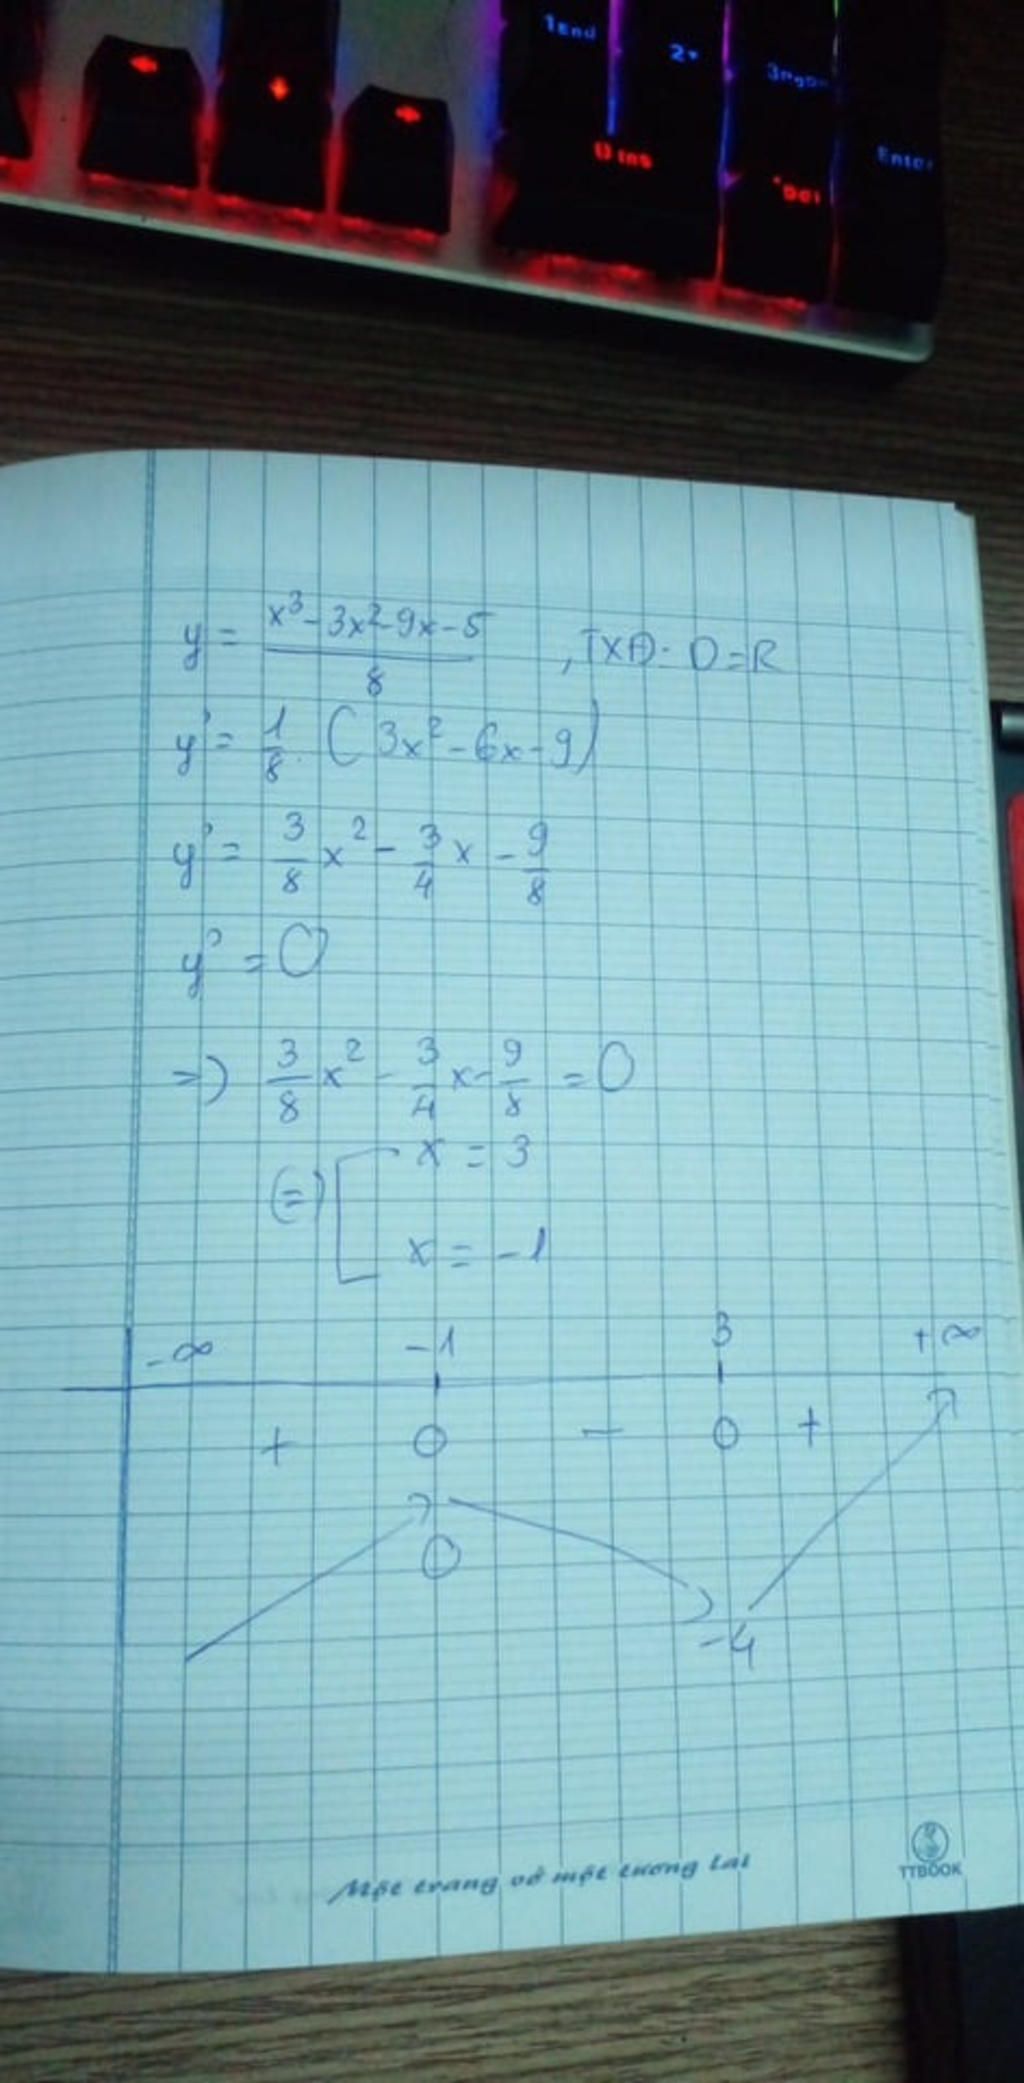 1End
2
Enter
0 Ins
Del
y = (x³ - 3x² - 9x - 5)/8 , TXĐ: D = R
y' = 1/8 . (3x² - 6x - 9)
y' = 3/8 x² - 3/4 x - 9/8
y' = 0
=> 3/8 x² - 3/4 x - 9/8 = 0
(=) [ x = 3
x = -1
-∞ -1 3 +∞
+ 0 - 0 +
0
-4
Một trang vở một tương lai
TTBOOK